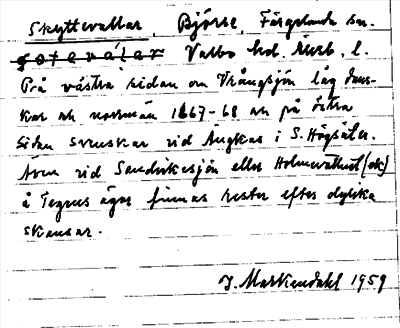 Skyttevallar, Björse, Färgelanda sn.
gotevalar Valbo hd. Älvsb. l.
På västra sidan om Vrångsjön låg dans-
kar och norrmän 1667-68 och på östra
sidan svenskar vid Ängkas i S. Högsäter.
Även vid Sandvikesjön eller Holmevattnet (ok)
å Tegnus ägor finnas rester efter dylika
skansar.
J. Markendahl 1959